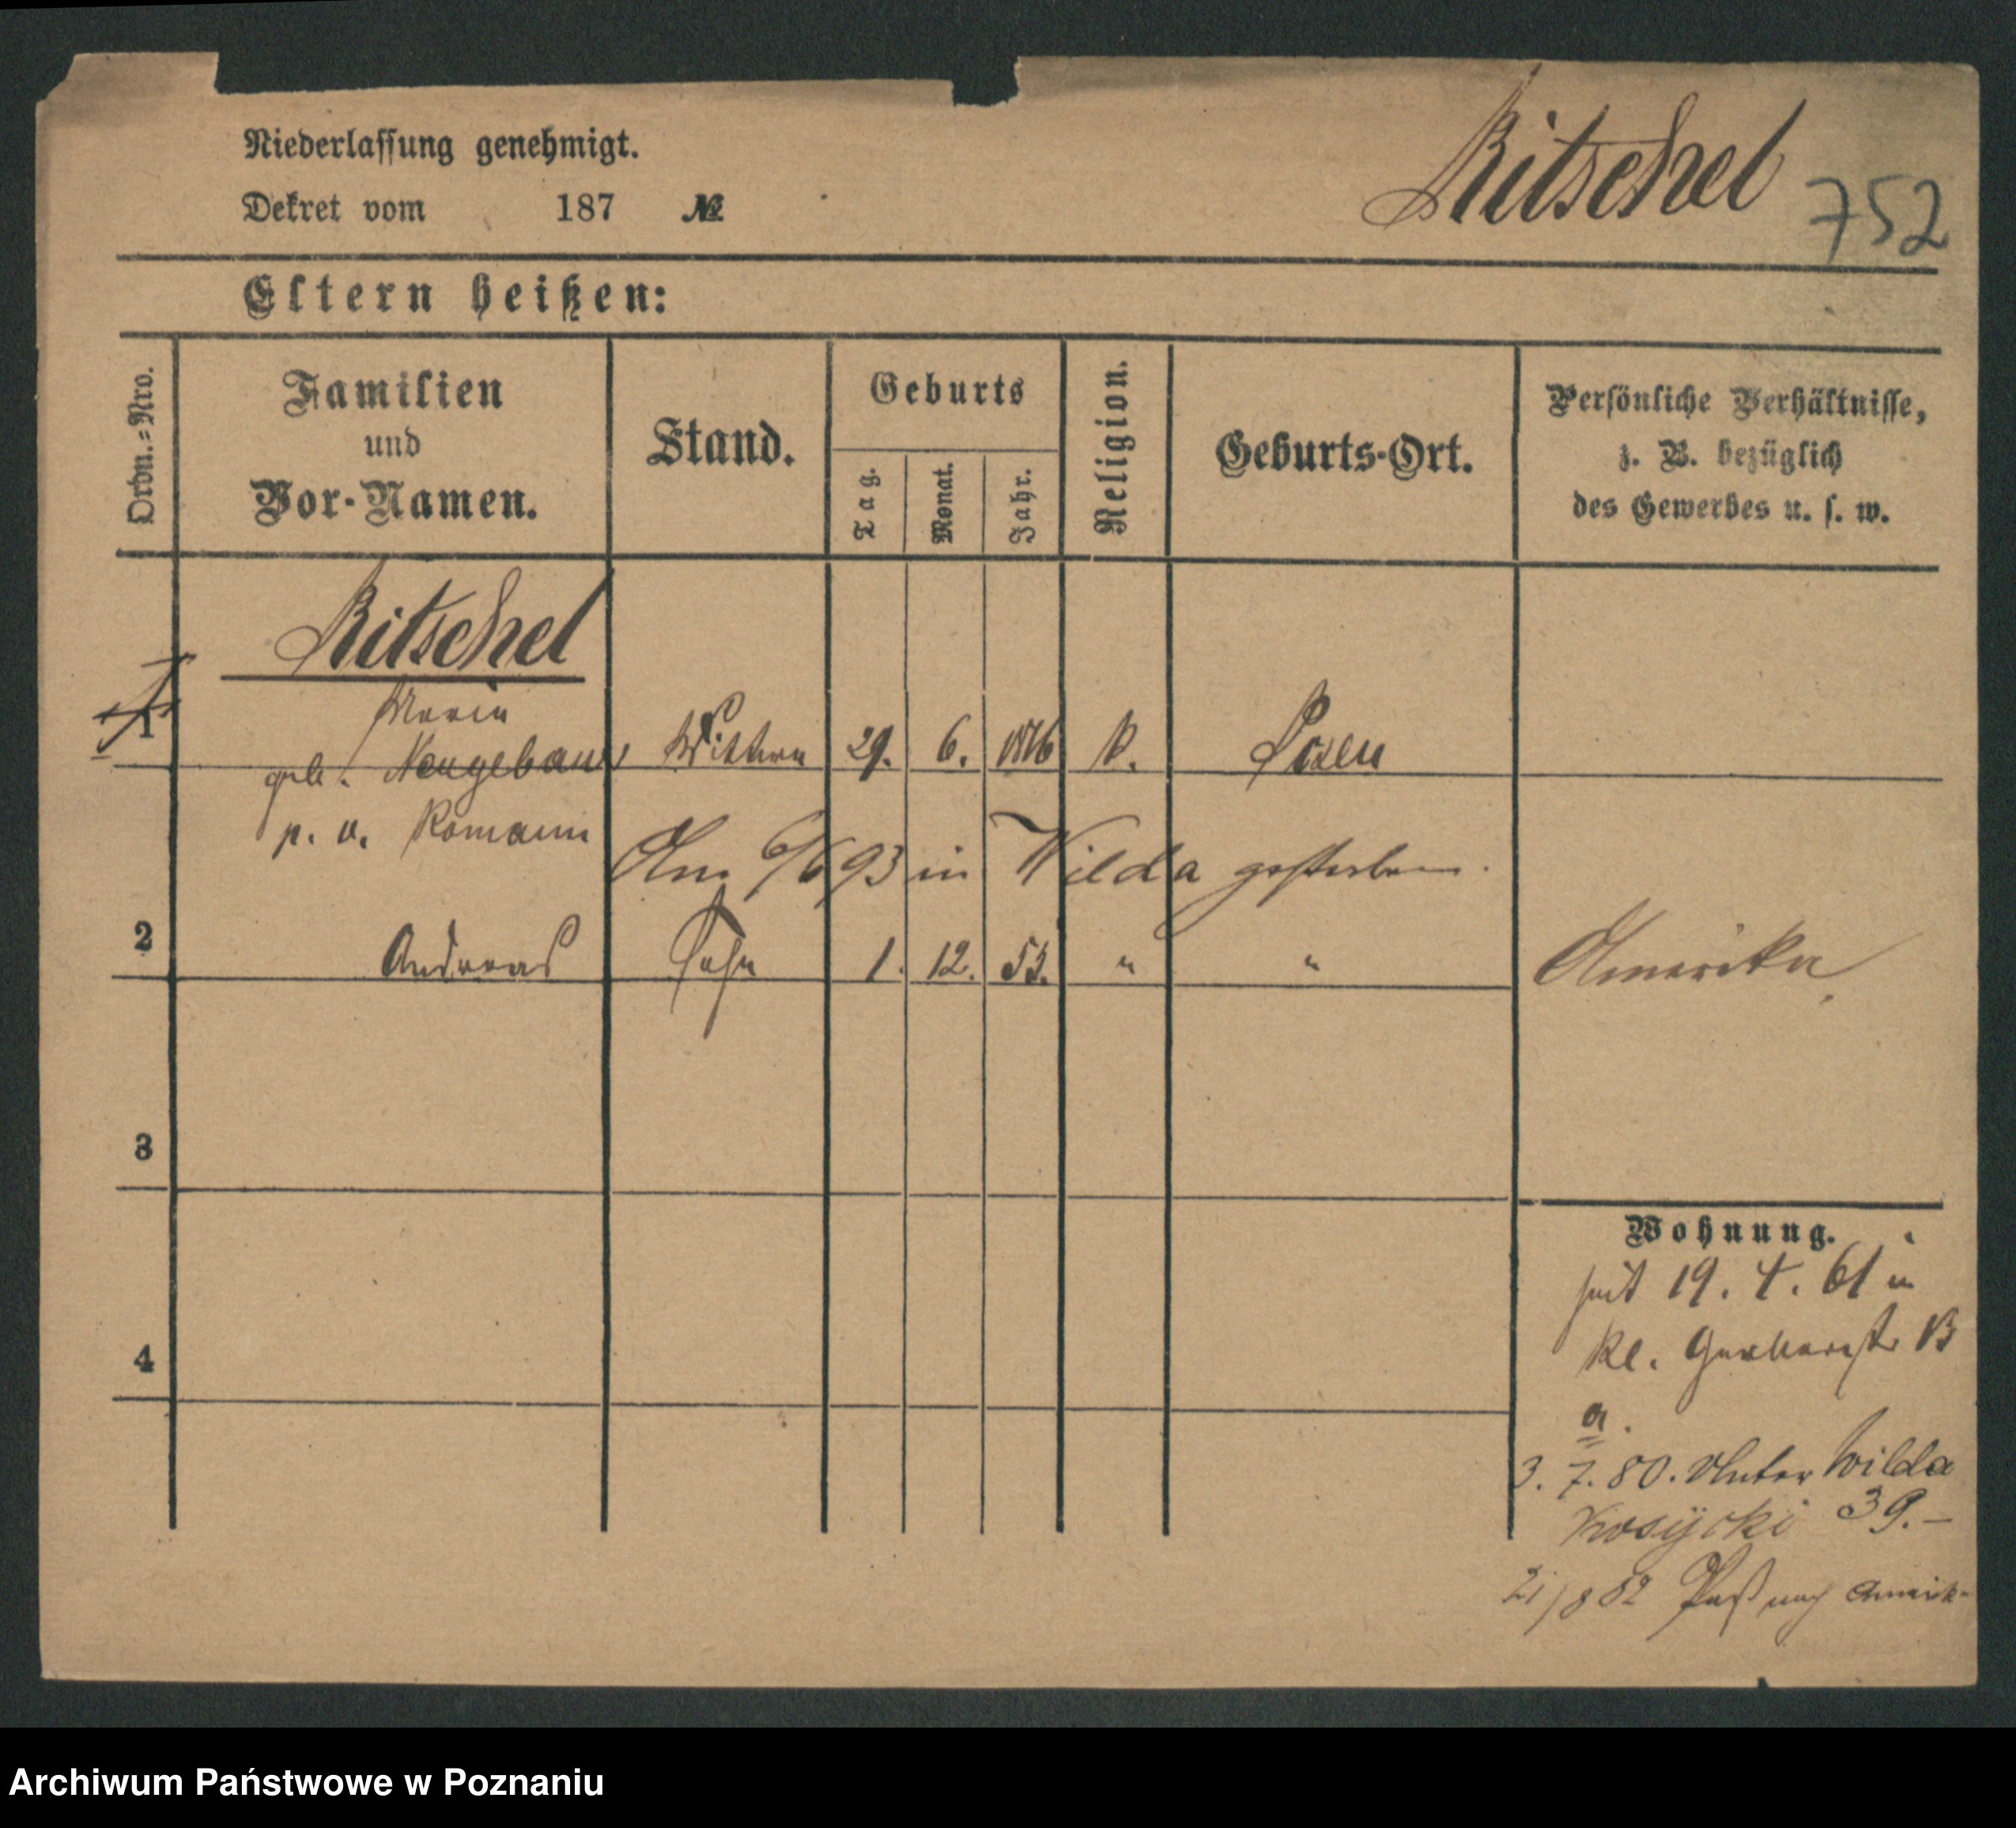 Niederlassung genehmigt.
Ritschel
752
Dekret vom 187 №
Eltern heißen:
Ordn.=Nro.
Familien
und
Vor-Namen.
Stand.
Geburts
Tag.
Monat.
Jahr.
Religion.
Geburts-Ort.
Persönliche Verhältnisse,
z. B. bezüglich
des Gewerbes u. s. w.
Ritschel
1 Maria
geb. Neugebauer Wittwe 29. 6. K. Posen
p. v. Romann
Am 6/6 93 in Wilda gestorben.
2 Andreas Sohn 1. 12. 53. " " Amerika
3
4
Wohnung.
seit 19. 4. 61 in
Kl. Gerberstr
a.
3. 7. 80. Unter Wilda
39.-
21/8 82 Paß nach Amerik-
Archiwum Państwowe w Poznaniu